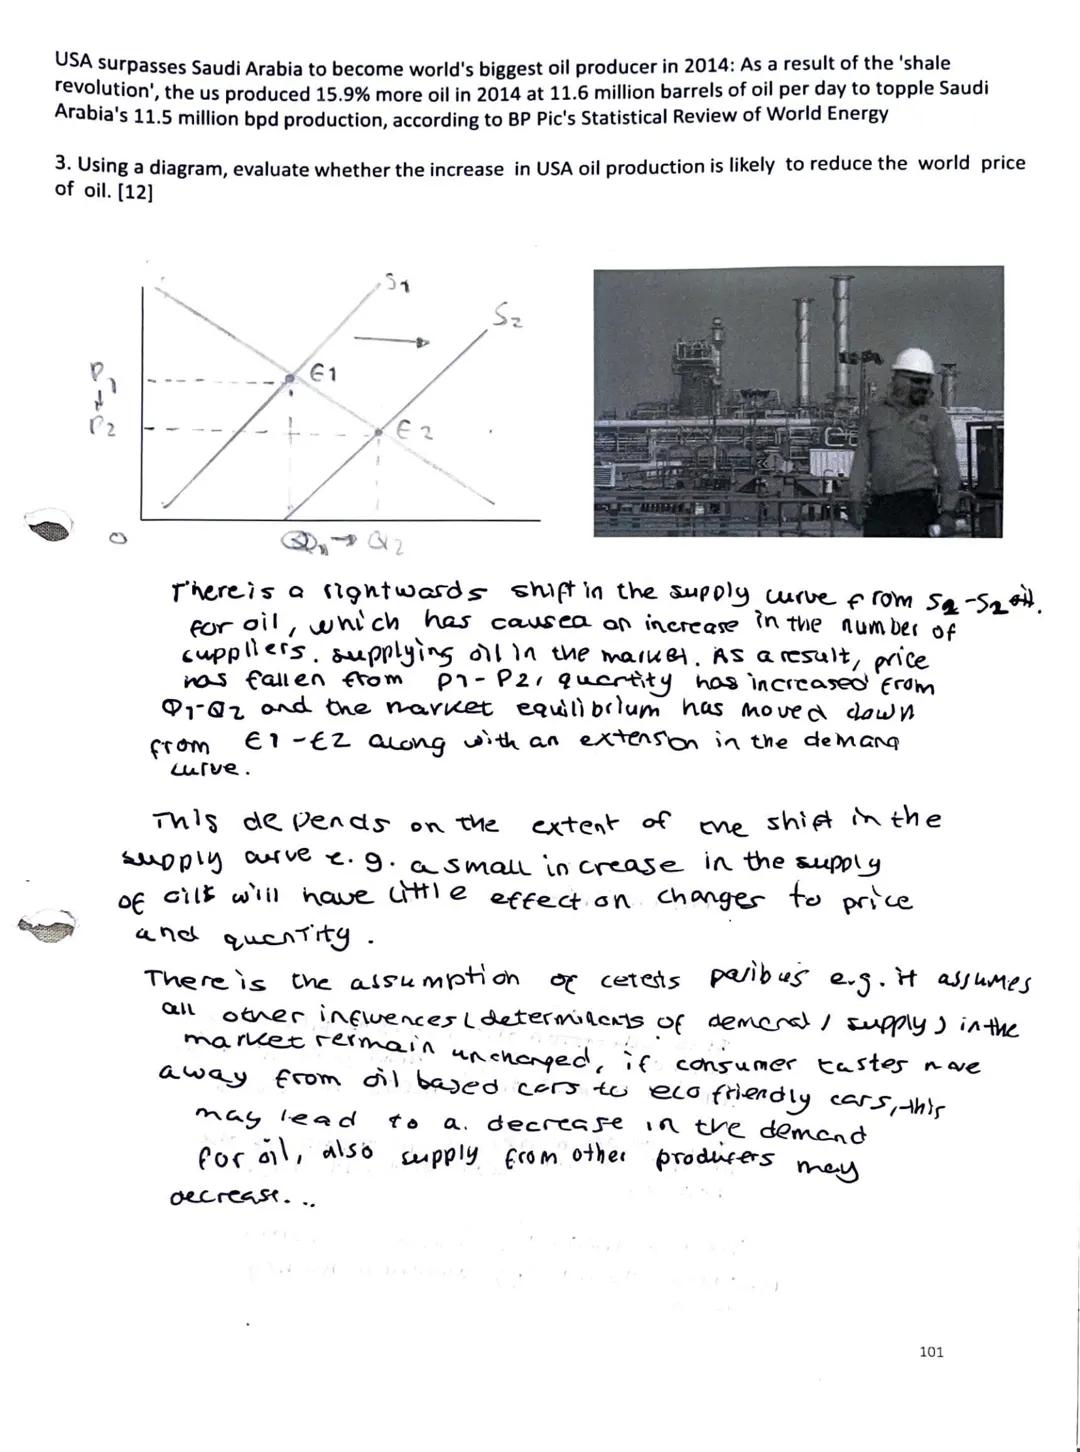 USA surpasses Saudi Arabia to become world's biggest oil producer in 2014: As a result of the 'shale
revolution', the us produced 15.9% more oil in 2014 at 11.6 million barrels of oil per day to topple Saudi
Arabia's 11.5 million bpd production, according to BP Pic's Statistical Review of World Energy
3. Using a diagram, evaluate whether the increase in USA oil production is likely to reduce the world price
of oil. [12]
S1
S2
P1
E1
P2
E2
0
Q1 → Q2
There is a rightwards shift in the supply curve from S1-S2 oil.
for oil, which has caused an increase in the number of
suppliers. supplying oil in the market. As a result, price
has fallen from P1-P2, quantity has increased from
Q1-Q2 and the market equilibrium has moved down
from E1-E2 along with an extension in the demand
curve.
This depends on the extent of the shift in the
supply curve e.g. a small increase in the supply
of oil will have little effect on changes to price
and quantity.
There is the assumption of ceteris paribus e.g. it assumes
all other influences (determinants of demand / supply) in the
market remain unchanged, if consumer tastes move
away from oil based cars to eco friendly cars, this
may lead to a decrease in the demand
for oil, also supply from other producers may
decrease...
101